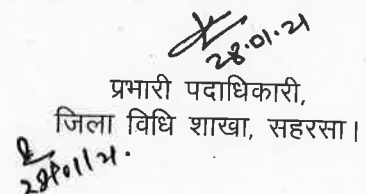 28.01.21
प्रभारी पदाधिकारी,
जिला विधि शाखा, सहरसा।
28/01/21.